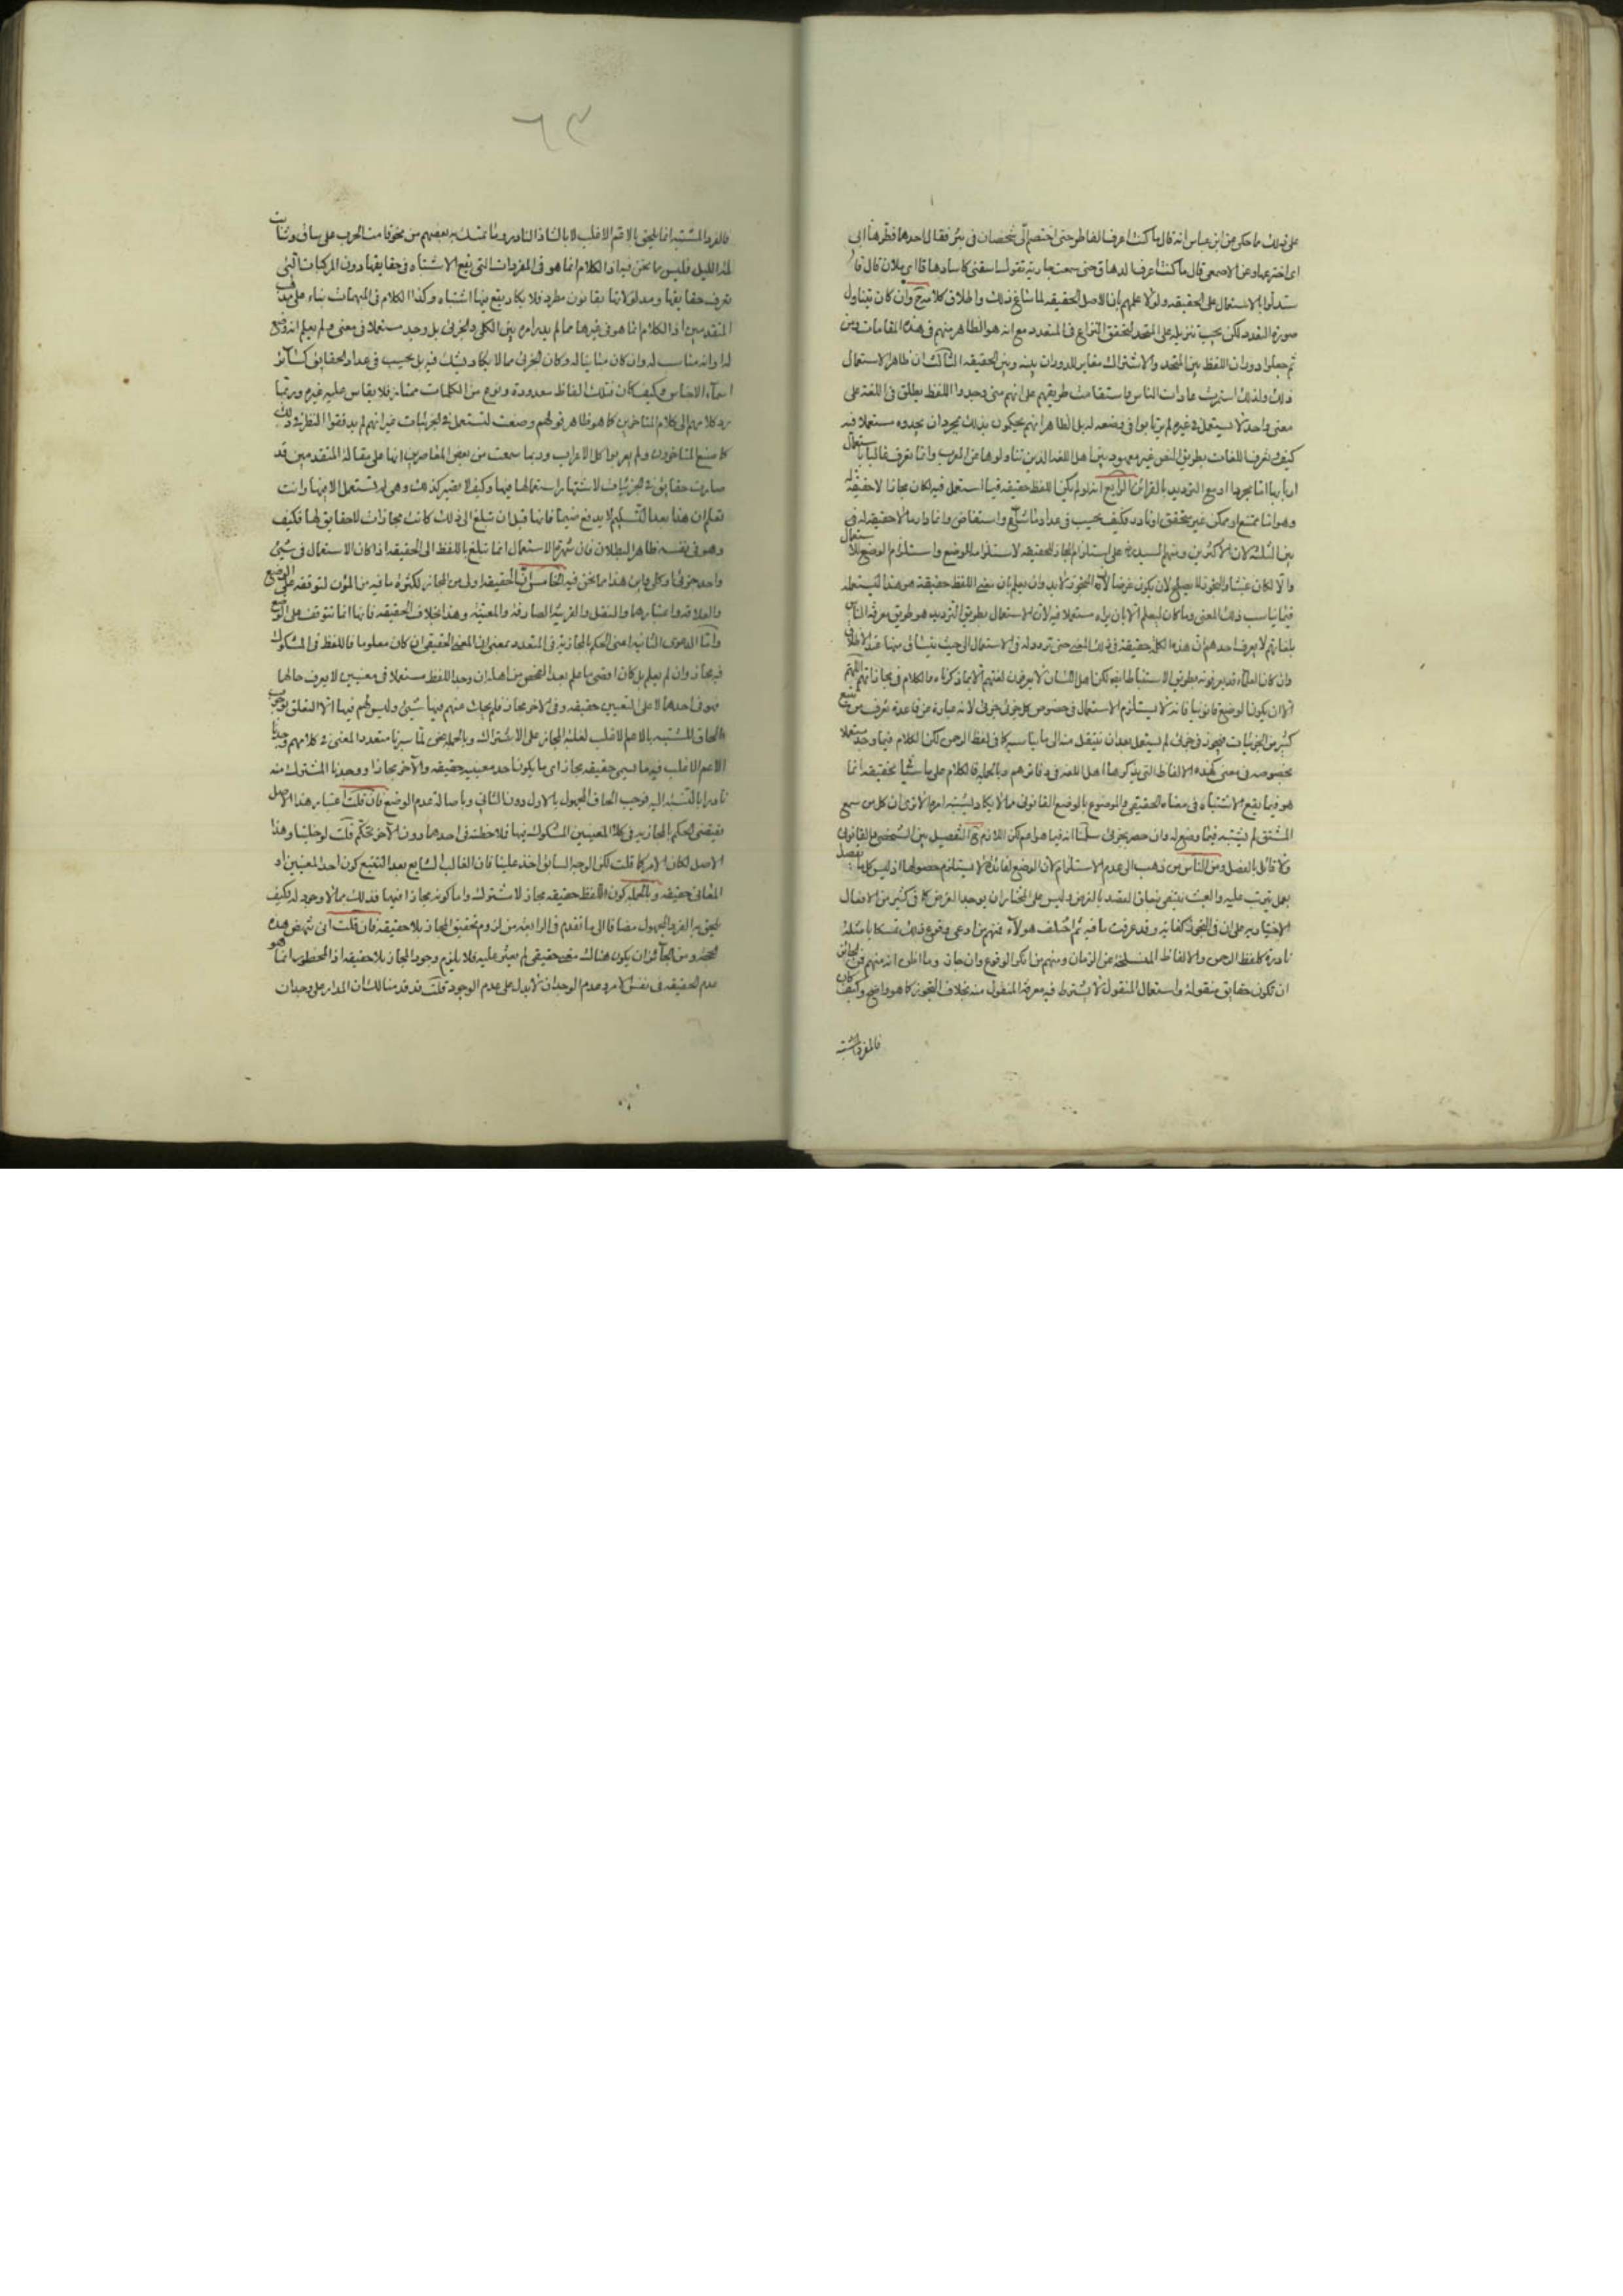 على ذلك ما حكى عن ابن عباس انه قال ما كنت اعرف الفاطر حتى اختصم الى شخصان فى بئر فقال احدهما فطرها ابى
اى اخترعها وعن الاصمعى قال ما كنت اعرف الدهاق حتى سمعت جارية تقول اسقنى كاسا دهاقا اى ملان قال فا
ستدلوا بالاستعمال على الحقيقه ولولا علمهم بان الاصل الحقيقه لما ساغ ذلك واطلاق كلامهم وان كان يتناول
صورة التعدد لكن يجب تنزيله على المتحد لتحقق النزاع فى المتعدد مع انه هو الظاهر منهم فى هذه المقامات ومن
ثم جعلوا دوران اللفظ بين المتحد والاشتراك مغاير للدوران بينه وبين الحقيقه الثالث ان ظاهر الاستعمال
ذلك ولذلك استمرت عادات الناس واستقامت طريقهم على انهم متى وجدوا اللفظ يطلق فى اللغة على
معنى واحد لا يستعمل فى غيره لم يرتابوا فى وضعه له بل الظاهر انهم يحكمون بذلك بمجرد ان يجدوه مستعملا فيه
كيف وتعرف اللغات بطريق النص غير معهود بين اهل اللغه الذين تناولوها من العرب وانما تعرف غالبا بالاستعمال
اما بها اما مجردا او مع الترديد بالقرائن الرابع انه لو لم يكن اللفظ حقيقه فيما استعمل فيه لكان مجازا لا حقيقة له
وهو اما ممتنع او ممكن غير متحقق او نادر فكيف يحسب فى عداد ما شاع واستفاض وانما دار مالا حقيقه له فى
بين الثلثه لان الاكثرين ومنهم السيد ره على استلزام المجاز للحقيقه لاستلزامه الوضع واستلزام الوضع للاستعمال
والا لكان عبثا والتجوز لا يصلح لان يكون غرضا لان التجوز لا بد وان يعلم بان معنى اللفظ حقيقة هو هذا ليستعمله
فيما يناسب ذلك المعنى وما كان ليعلم الا بان يراه مستعملا فيه لان الاستعمال بطريق الترديد هو طريق معرفة الناس
بلغاتهم لا يعرف احدهم ان هذه الكلمة حقيقة فى ذلك المعنى حتى تردد له فى الاستعمال الى حيث يتبادر منها عند الاطلاق
وان كان العلماء قد يعرفونه بطريق الاستنباط ايضا لكن اهل اللسان لا يعرفون لغتهم الا بما ذكرناه والكلام فى مجازاتهم اللهم
الا ان يكون الوضع قانونيا فانه لا يستلزم الاستعمال فى خصوص كل جزئى جزئى لانه عبارة عن قاعدة تعرف من تتبع
كثير من الجزئيات فيجوز فى جزئى لم يستعمل بعد ان ينتقل منه الى ما يناسبه كما فى لفظ الرحمن لكن الكلام فيما وجد مستعملا
بخصوصه فى معنى كهذه الالفاظ التى يذكرها اهل اللغه فى دفاترهم وبالجملة فالكلام على ما شا الحقيقه انما
هو فيما يقع الاشتباه فى معناه الحقيقى والموضوع بالوضع القانونى مما لا يكاد يشتبه امره الا ترى ان كل من سمع
المشتق لم يشتبه فيما وضع له وان حصر بجزئى سلمنا انه فيما هو اعم لكن اللازم ح التفصيل بين الشخصى والقانونى
ولا قائل بالفصل ومن الناس من ذهب الى عدم الاستلزام لان الوضع لفائدة لا يستلزم حصولها اذ ليس كل ما يقصد
بعمل يترتب عليه والعبث ينتفى بتعلق القصد بالغرض وليس على المختار ان يوجد الغرض كما فى كثير من الافعال
الاختياريه على ان فى التجوز كفاية وقد عرفت ما فيه ثم اختلف هولاء فمنهم من ادعى وقوع ذلك تمسكا بامثلة
نادرة كلفظ الرحمن والالفاظ المنسلخة عن الزمان ومنهم من انكر الوقوع وان جاز وما اظن انه منهم فمن الجائز
ان تكون حقايق منقولة واستعمال المنقول لا يشترط فيه معرفة المنقول منه بخلاف التجوز كما هو واضح وكيف كان
فالمفرد المشتبه
٦٣
فالفرد المشتبه انما يلحق بالاعم الاغلب لا بالشاذ النادر وما تمسك به بعضهم من نحو قامت الحرب على ساق وشابت
لمة الليل فليس مما نحن فيه اذ الكلام انما هو فى المفردات التى يقع الاشتباه فى حقايقها دون المركبات التى
تعرف حقايقها ومدلولاتها بقانون مطرد فلا يكاد يقع فيها اشتباه وكذا الكلام فى المبهمات بناء على مذهب
المتقدمين اذ الكلام انما هو فى غيرها مما لم يدر امره بين الكلى والجزئى بل وجد مستعملا فى معنى ولم يعلم انه وضع
له او انه مناسب له وان كان مباينا له وكان الجزئى مما لا يكاد يشك فيه بل يحسب فى عداد الحقايق كسائر
اسماء الاجناس وكيف كان فتلك الفاظ معدودة ونوع من الكلمات ممتاز فلا يقاس عليه غيره وربما
رد كلامهم الى كلام المتاخرين كما هو ظاهر قولهم وضعت لتستعمل فى الجزئيات غير انهم لم يدققوا النظر فى ذلك
كما صنع المتاخرون ولم يعربوا كل الاعراب وربما سمعت من بعض المعاصرين انها على مقالة المتقدمين قد
صارت حقايق فى الجزئيات لاشتهار استعمالها فيها وكيف لا يصير كذلك وهى لم تستعمل الا فيها وانت
تعلم ان هذا بعد التسليم لا يدفع ضيما فانها قبل ان تبلغ الى ذلك كانت مجازات لا حقايق لها فكيف
وهو فى نفسه ظاهر البطلان فان شهرة الاستعمال انما تبلغ باللفظ الى الحقيقه اذا كان الاستعمال فى شئ
واحد جزئى او كلى واين هذا مما نحن فيه الخامس ان الحقيقه اولى من المجاز لكثرة ما فيه من المؤن لتوقفه على الوضع
والعلاقه واعتبارها والنقل والقرينة الصارفة والمعينه وهذا بخلاف الحقيقه فانها انما تتوقف على الوضع
واما الدعوى الثانيه اعنى الحكم بالمجازية فى المتعدد بمعنى ان المعنى الحقيقى ان كان معلوما فاللفظ فى المشكوك
فيه مجاز وان لم يعلم بل كان اقصى ما علم بعد الفحص من اهله ان وجد اللفظ مستعملا فى معنيين لا يعرف حالهما
فهو فى احدهما لا على التعيين حقيقه وفى الاخر مجاز فلم يحك منهم فيها شئ وليس لهم فيها الا التعلق بوجوب
الحاق المشتبه بالاعم الاغلب لغلبة المجاز على الاشتراك وبالجملة نحن لما سبرنا متعدد المعنى فى كلامهم وجدنا
الاعم الاغلب فيه ما يسمى حقيقه مجاز اى ما يكون احد معنييه حقيقه والاخر مجازا ووجدنا المشترك منه
نادرا بالنسبة اليه فوجب الحاق المجهول بالاول دون الثانى وباصالة عدم الوضع فان قلت اعتبار هذا الاصل
يقتضى الحكم بالمجازيه فى كلا المعنيين المشكوك فيهما فلاحظته فى احدهما دون الاخر تحكم قلت لو خلينا وهذا
الاصل لكان الامر كما قلت لكن الوجه السابق اخذ علينا فان الغالب الشايع بعد التتبع كون احد المعنيين او
المعانى حقيقه وبالجملة كون اللفظ حقيقه مجاز لا مشترك واما كونه مجازا فيهما فذلك مما لا وجود له فكيف
يلحق به الفرد المجهول مضافا الى ما تقدم فى الرابعة من لزوم تحقيق المجاز بلا حقيقه فان قلت انى تنهض هذه
الحجه ومن الجائز ان يكون هنالك معنى حقيقى لم يعثر عليه فلا يلزم وجود المجاز بلا حقيقه اذ المحظور انما هو
عدم الحقيقه فى نفس الامر وعدم الوجدان لا يدل على عدم الوجود قلت قد قدمنا لك ان المدار على وجدان